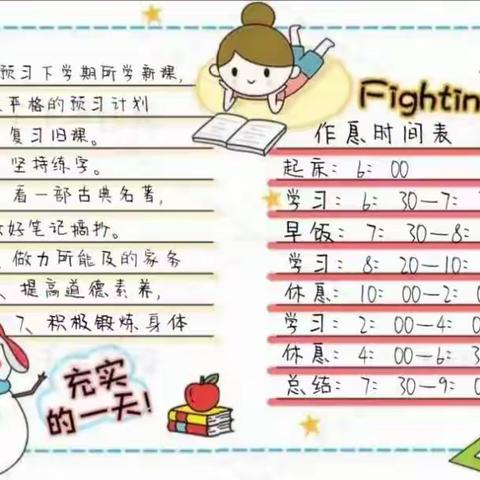 预习下学期所学新课,
严格的预习计划
复习旧课。
坚持练字。
看一部古典名著,
好笔记摘抄。
、做力所能及的家务
、提高道德素养,
7、积极锻炼身体
充实
的一天!
Fightin
作息时间表
起床: 6: 00
学习: 6: 30—7:
早饭: 7: 30—8:
学习: 8: 20—10:
休息: 10: 00—2:
学习: 2: 00—4:
休息: 4: 00—6:
总结: 7: 30—9: